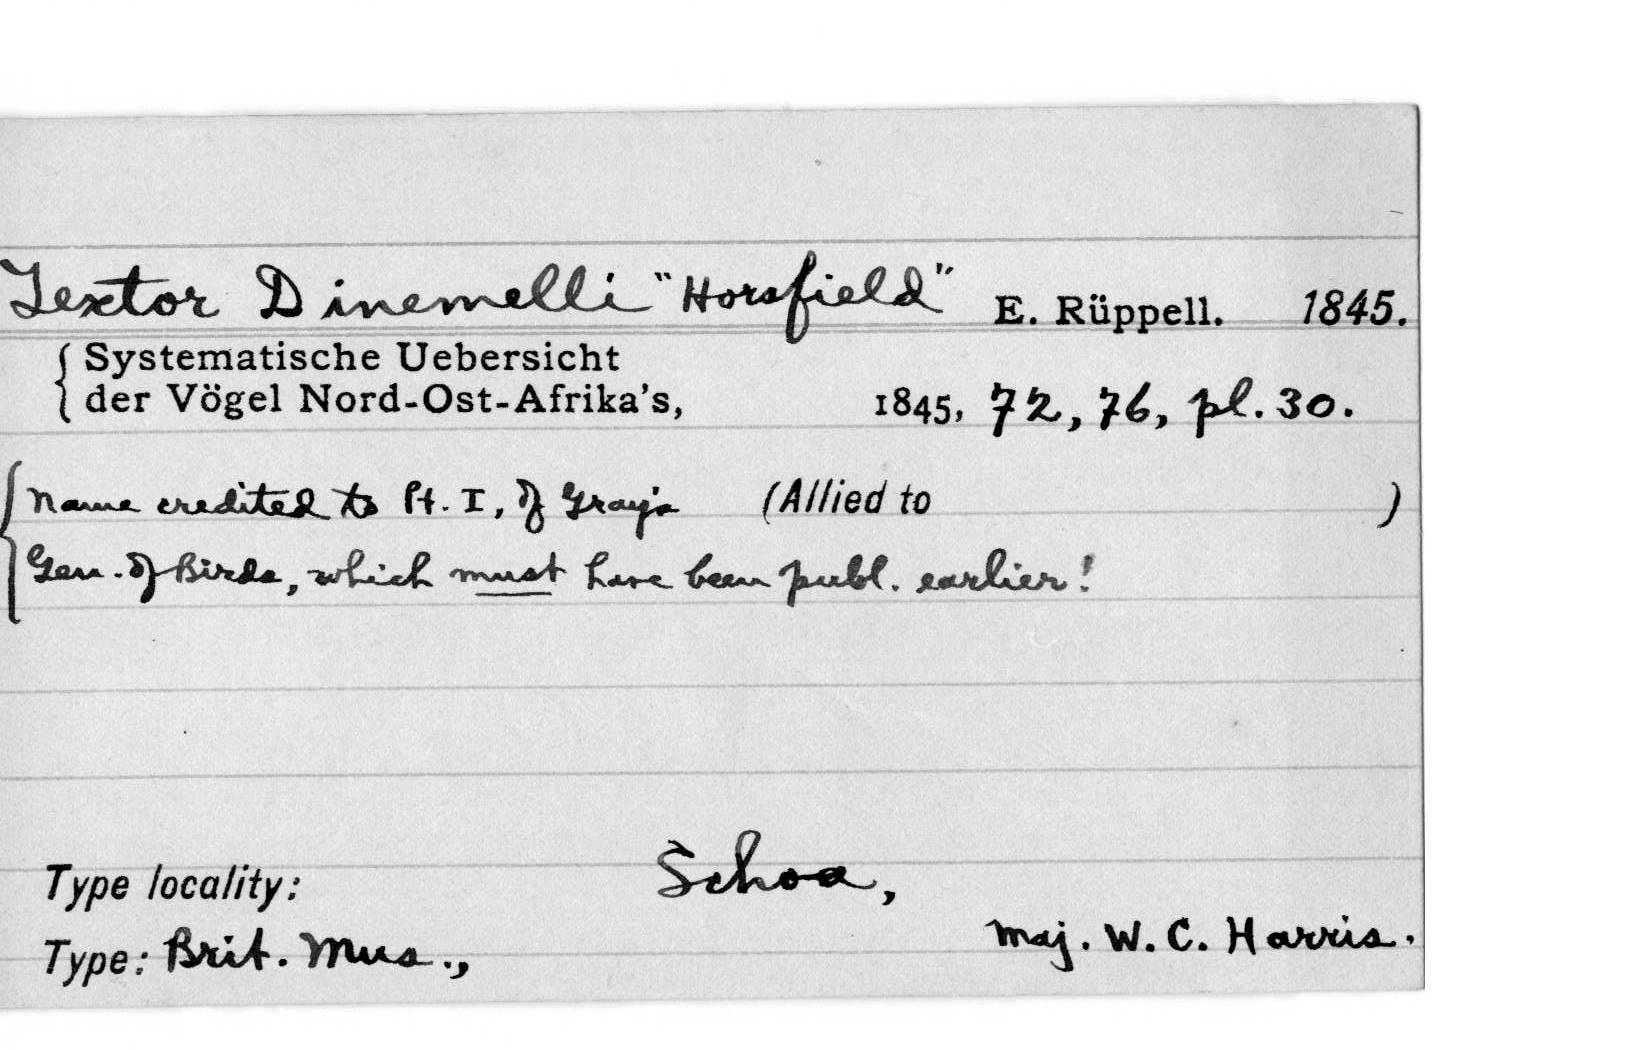 Textor Dinemelli "Horsfield" E. Rüppell. 1845.
Systematische Uebersicht
der Vögel Nord-Ost-Afrika's, 1845, 72, 76, pl. 30.
Name credited to Pt. I, of Gray's (Allied to )
Gen. of Birds, which must have been publ. earlier!
Type locality: Schoa,
Type: Brit. Mus., Maj. W. C. Harris.